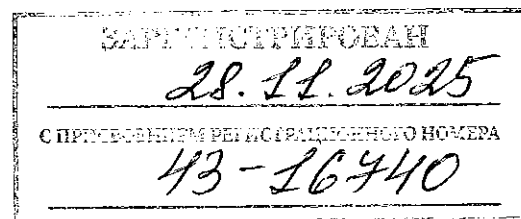 ЗАРЕГИСТРИРОВАН
28.11.2025
С ПРИСВОЕНИЕМ РЕГИСТРАЦИОННОГО НОМЕРА
43-16740